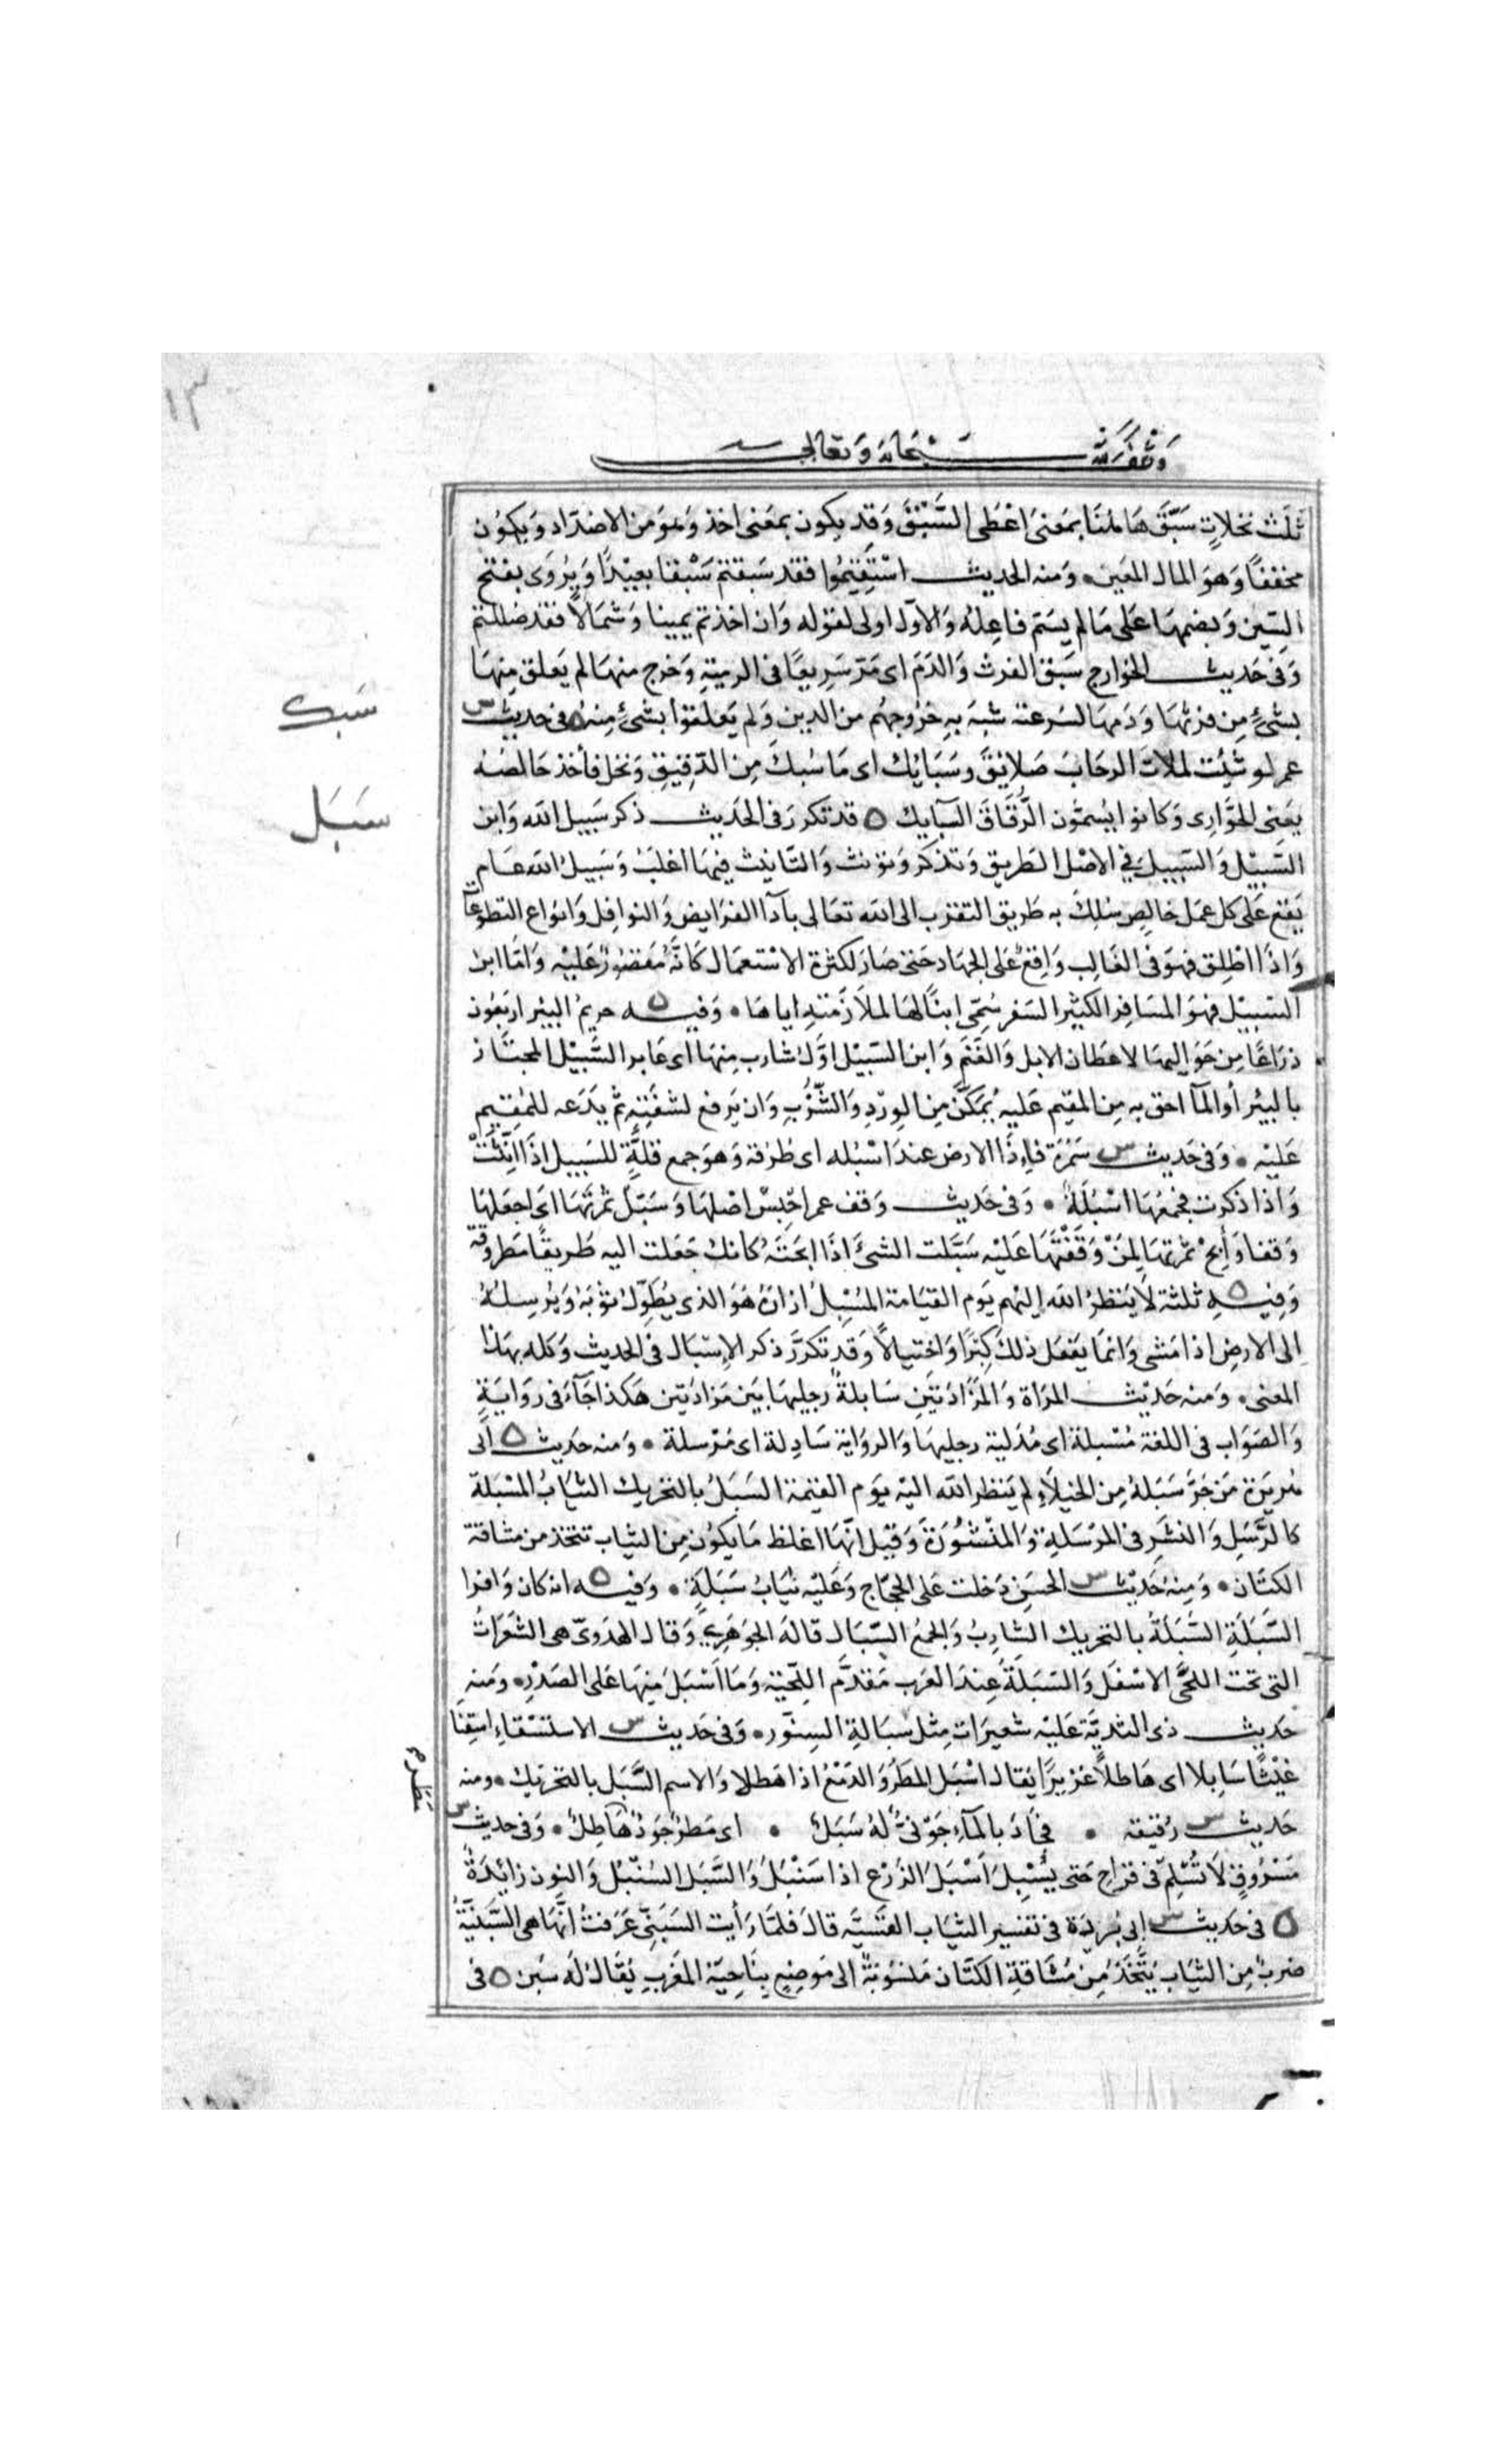 وقف لله سبحانه وتعالى
ثلث نخلات سَبَّقَ هاهنا بمعنى اعْطى السَّبَقَ وَقد يكون بمعنى اخذ وَهوَ من الاضداد وَيكوُن
مخففاً وَهوَ المال المعَين ومنه الحديث اسْتَقِيمُوا فقد سَبقتم سَبْقا بعيْدًا وَيُروَى بفتح
السِّين وَبضمهَا عَلى مَا لم يسَم فاعِلهُ وَالاَول اولى لقوله وَان اخذتم يمينا وَشمَالاً فقد ضللتم
وَفى حَديث الخوارج سَبق الفرث وَالدَمَ اى مَر سَرِيعًا فى الرمية وَخرج منهَا لم يَعلق مِنهَا
بشئٍ مِن فرثهَا وَدَمهَا لسرعته شبهَ بهِ خرُوجهُم من الدين وَلم يَعلقوا بشئ منهُ ه فى حديث س
عمر لو شئت لملات الرحَابَ صَلائقَ وسَبَائك اى مَا سُبكَ مِن الدّقيق وَنخل فأخذ خَالصُه
يعَنى الحوَّارى وَكانوا يُسمّون الرُّقَاقَ السَّبايك ه قد تكررَ فى الحَديث ذكر سَبيل الله وَابن
السَّبيْل وَالسّبيلُ في الاصْل الطريق وَتذكر وَتؤنث وَالتّانيث فيهَا اغلبُ وَسَبيلُ الله عَام
يَقع عَلى كل عمَل خالِصٍ سُلِكَ به طَريق التقرب الى الله تعَالى بأدآ الفرَايض وَالنوافِل وَانواع التطوعات
وَاذَا اطْلِق فهوَ فى الغَالِب وَاقِعٌ عَلى الجهَاد حَتى صَارَ لكثرة الاسْتعمَال كَانَّهُ مَقصُورٌ عَليْه وَامّا ابن
السَبيْل فهوَ المسَافر الكثيْر السَفر سُمِّى ابنًا لهَا لملاَزمَته اياهَا وَفيه ه حريمُ البيْر اربعُون
ذرَاعًا مِن حَوَاليهَا لاعطان الابل وَالغَنَمِ وَابن السَبيْل اوَّلُ شارب مِنهَا اى عَابر السَّبيْل المجتَاز
بالبيْر أو المآ احق به مِن المقيم عَليهِ يُمَكَّنُ مِن الوِرْدِ وَالشُّرْبِ وَان يَرفع لشفَتِهِ ثم يَدَعه للمُقيم
عَليْه وَفى حَديث س سَمُرَة فاِذَا الارض عندَ اسْبُله اى طُرقه وَهوَ جمع قلَّةٍ للسَبيل اذَا انِّثتْ
وَاذا ذكرت فجمعُهَا اسْبلَةٌ وَفى حَديث وَقف عمر احْبِسْ اصْلهَا وَسَبّلْ ثمَرتَهَا اىَ اجعَلهَا
وَقفا وَأبِحْ ثمَرتهَا لِمَنْ وَقَفْتَهَا عَليْه سَبَّلت الشئَ اذَا ابحَتَهُ كانك جَعَلت اليه طَريقًا مَطروقة
وَفيهِ ه ثلثة لاَ يَنظرُ الله اِليهم يَوم القيَامة المُسْبِلُ ازارَهُ هُوَ الذى يُطَوِّلُ ثوْبَهُ وَيُرسِلهُ
اِلى الارضِ اذا مَشى وَانمَا يفعَل ذلك كِبْرًا وَاختيالاً وَقد تكرَّرَ ذكر الاِسْبَال فى الحديث وَكله بهَذا
المعنى وَمنه حَديْث المرَاة وَالمزَادَتَيْنِ سَابلةٌ رجليهَا بَين مَزادَتيْن هَكذا جَآءَ فى روَايَةٍ
وَالصَوَاب فى اللغة مُسْبلة اى مُدَلية رجليهَا وَالروَاية سَادِلة اى مُرسلة وَمنه حَديث ه ابى
هُريَرَة مَن جَرَّ سَبَلهُ مِن الخيلآءِ لم يَنظر الله اليْه يوَم القيٰمة السَبَلُ بالتحريك الثيَابُ المسْبَلة
كالرَّسَلِ وَالنشَرِ فى المرْسَلةِ وَالمنْشُورَةِ وَقيْل انّهَا اغلظ مَا يكوُن مِن الثياب تتخذ من مشاقة
الكتَّان وَمِنهُ حَديْث س الحسَنِ دَخلت عَلى الحجَّاج وَعَليْه ثيَابُ سَبَلةٍ وَفيه ه انه كان وَافرا
السَّبَلَةِ السَّبَلةُ بالتحريك الشارِبُ وَالجمعُ السّبَال قالهُ الجوَهَرِيُّ وَقال الهرَوىّ هى الشعَرَاتُ
التى تحت اللحَى الاسْفَل وَالسَبَلَةُ عِندَ العرَب مَقدَّم اللّحْية وَمَا اَسْبَلَ مِنهَا عَلى الصَدْرِ وَمنه
حَديث ذى الثديَّة عَليْه شعيرَات مِثل سَبَالةِ السِنَّور وَفى حَديث س الاستسْقاءِ اسْقِنا
غيْثًا سَابِلا اى هَاطلاً غزيرًا يُقال اسْبَل المَطَرُ وَالدَمعُ اذا هَطلا وَالاسم السَّبَل بالتحريك ومنه
حَديث س رُقيقة فجَادَ بالمآءِ جَوْنيٌّ لهُ سَبَلُ اى مَطرٌ جَوْدٌ هَاطِلٌ وَفى حديث س
مَسْرُوقٍ لاَ تُسْلِمْ فى قرَاحٍ حَتى يُسْبِلَ اَسْبَلَ الزَرْع اذا سَنْبَلَ وَالسَّبَل السُنْبُل وَالنون زائدَةٌ
ه فى حَديث س ابى بُردَة فى تفسير الثيَاب القَسّيَّه قالَ فلمَّا رَأيت السَبَنِّى عَرَفتُ انَّهَا هى السَّبَنِيَّةُ
ضربٌ مِن الثيَاب يُتَّخَذ مِن مُشَاقةِ الكتَّان مَنسُوبةٌ الى مَوضع بنَاحِيَة المَغربِ يُقالُ لهُ سَبَن ه فى
سَبك
سَبَل
مَطَر
١٣